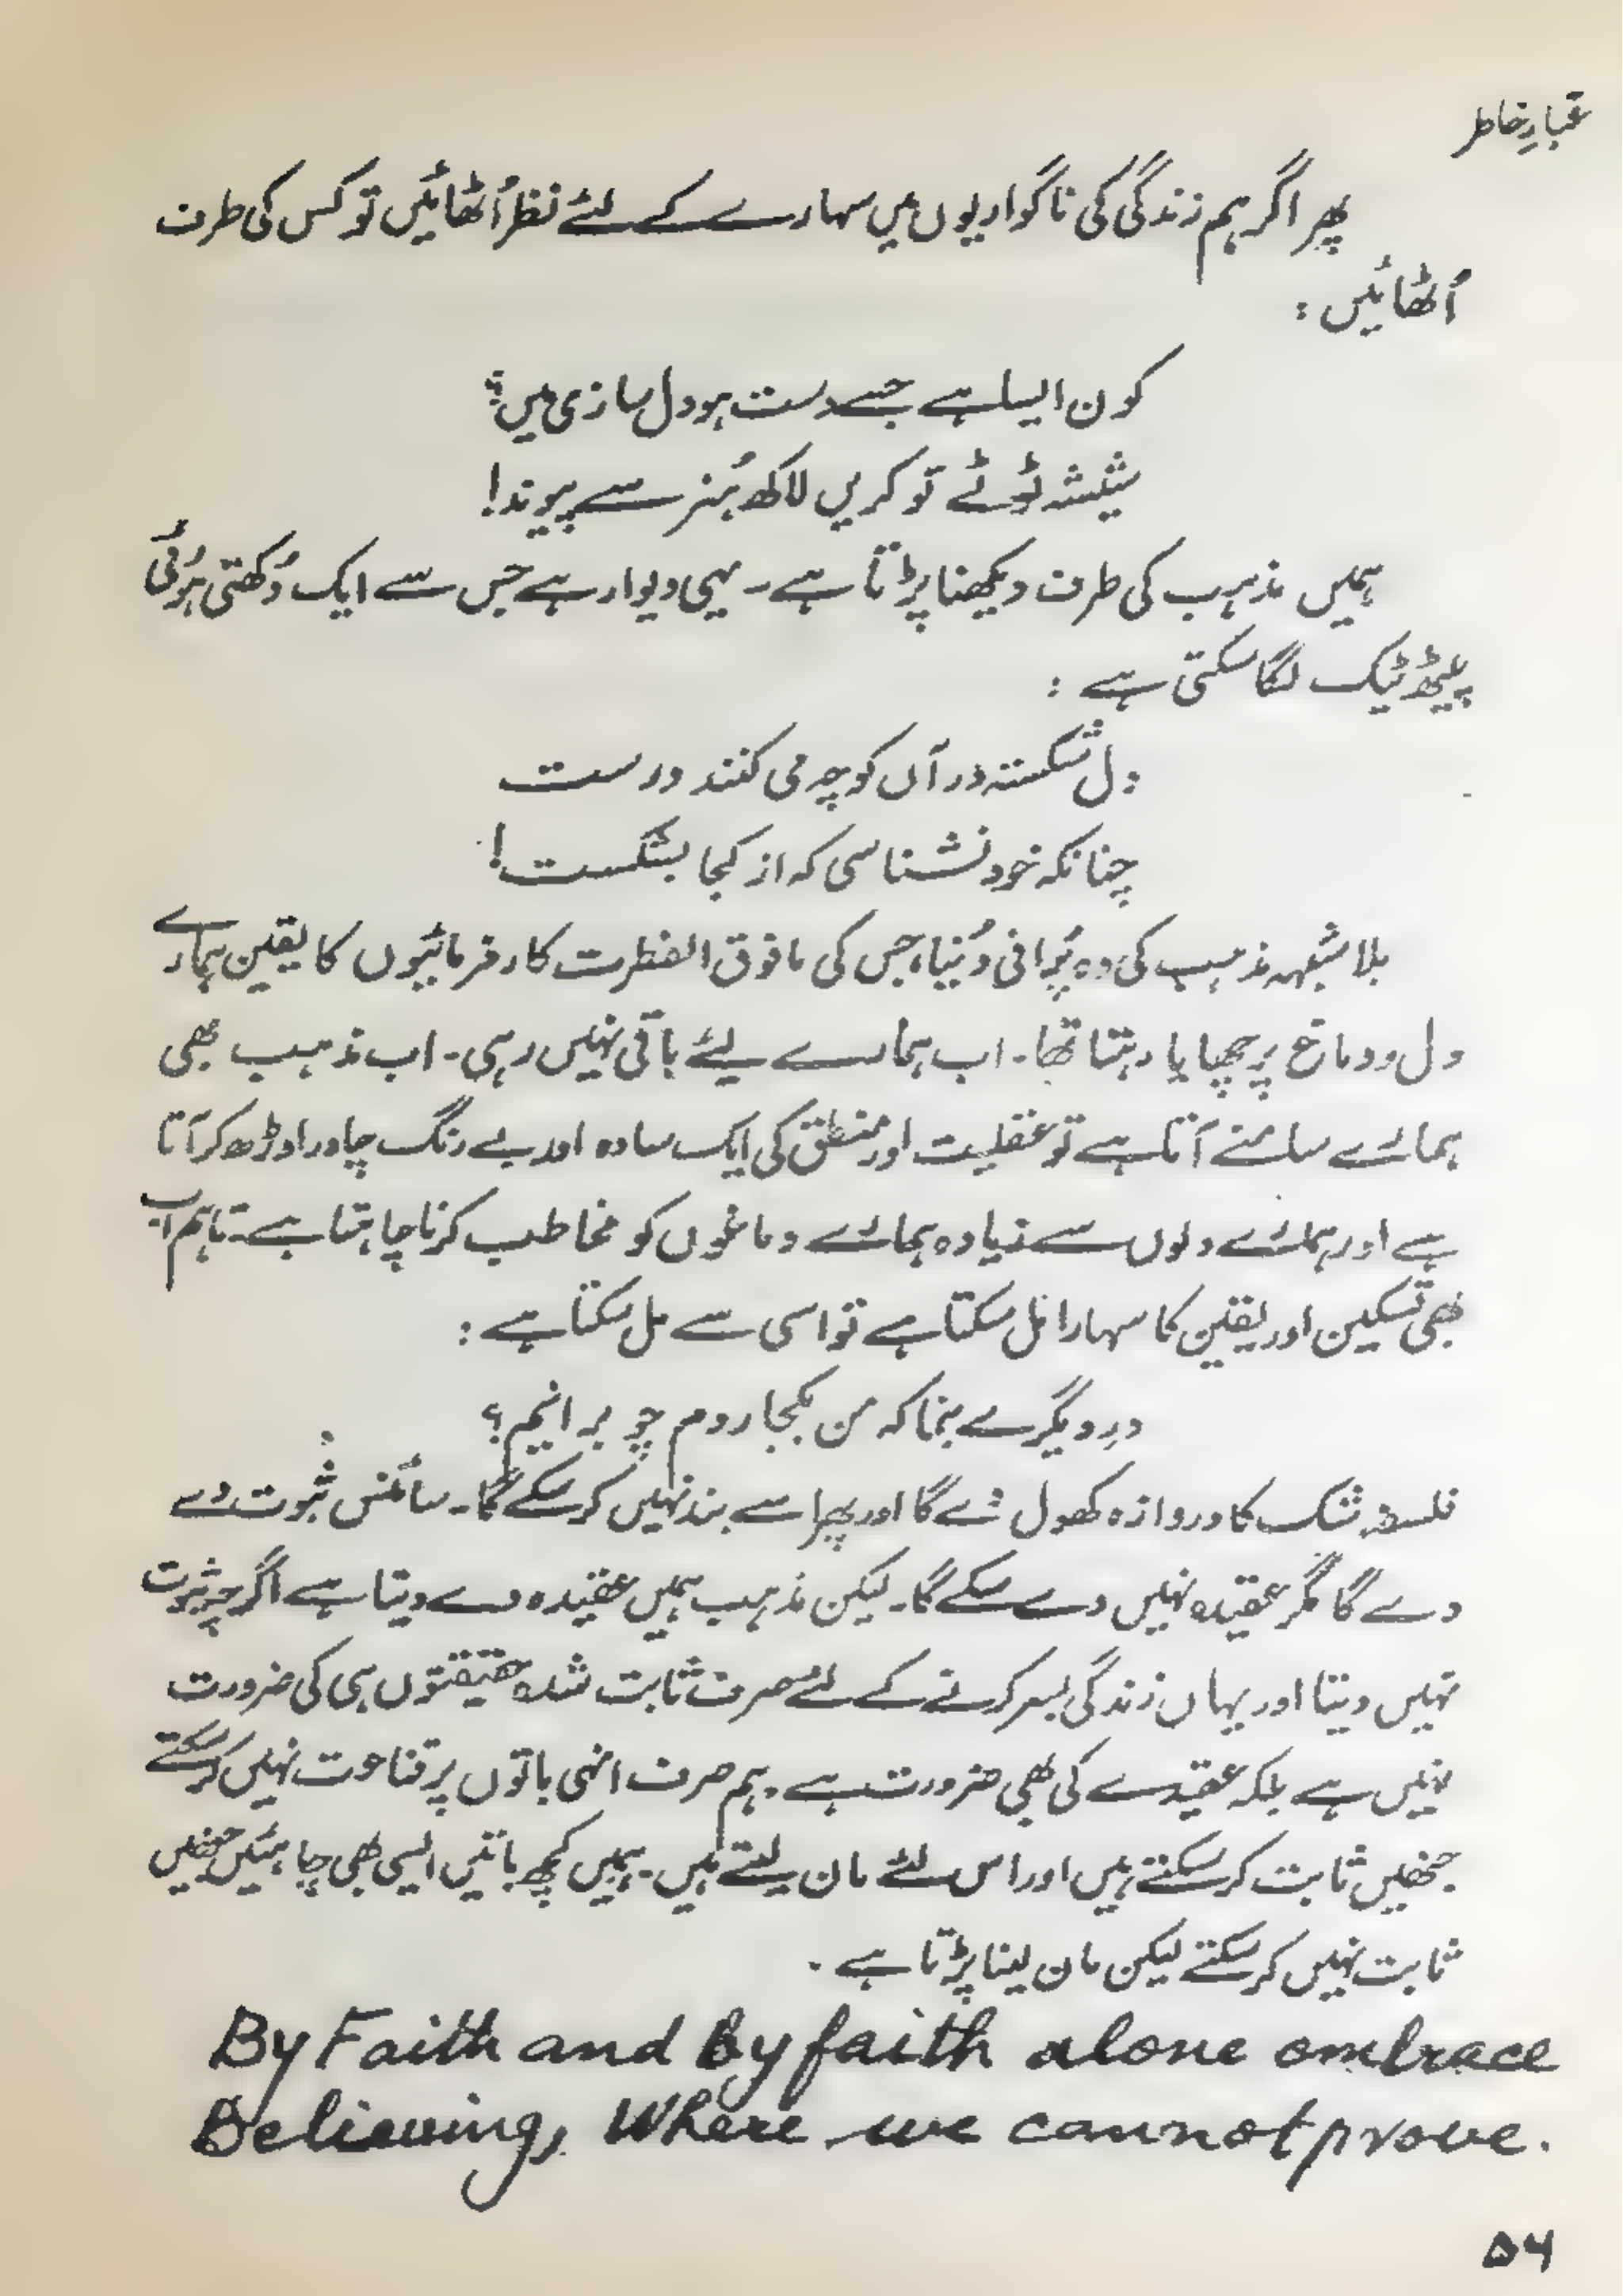 غبارِ خاطر
پھر اگر ہم زندگی کی ناگواریوں میں سہارے کے لئے نظر اُٹھائیں تو کس کی طرف
اُٹھائیں :
کون ایسا ہے جسے دست ہو دل سازی میں؟
شیشہ ٹوٹے تو کریں لاکھ ہُنر سے پیوند!
ہمیں مذہب کی طرف دیکھنا پڑتا ہے۔ یہی دیوار ہے جس سے ایک دُکھتی ہوئی
پیٹھ ٹیک لگا سکتی ہے :
دل شکستہ در آں کوچہ می کنند درست
چنانکہ خود نشناسی کہ از کجا بشکست!
بلا شبہہ مذہب کی وہ پُرانی دُنیا، جس کی مافوق الفطرت کارفرمائیوں کا یقین ہمارے
دل و دماغ پر چھایا رہتا تھا۔ اب ہمارے لیئے باقی نہیں رہی۔ اب مذہب بھی
ہمارے سامنے آتا ہے تو عقلیت اور منطق کی ایک سادہ اور بے رنگ چادر اوڑھ کر آتا
ہے اور ہمارے دلوں سے زیادہ ہمارے دماغوں کو مخاطب کرنا چاہتا ہے۔ تاہم اب
بھی تسکین اور یقین کا سہارا مل سکتا ہے تو اسی سے مل سکتا ہے :
درِ دیگرے بنما کہ من بکجا روم چو برانیم؟
فلسفہ شک کا دروازہ کھول دے گا اور پھر اسے بند نہیں کر سکے گا۔ سائنس ثبوت دے
دے گا مگر عقیدہ نہیں دے سکے گا۔ لیکن مذہب ہمیں عقیدہ دے دیتا ہے اگرچہ ثبوت
نہیں دیتا اور یہاں زندگی بسر کرنے کے لئے صرف ثابت شدہ حقیقتوں ہی کی ضرورت
نہیں ہے بلکہ عقیدے کی بھی ضرورت ہے۔ ہم صرف انہی باتوں پر قناعت نہیں کر سکتے
جنھیں ثابت کر سکتے ہیں اور اس لئے مان لیتے ہیں۔ ہمیں کچھ باتیں ایسی بھی چاہئیں جنھیں
ثابت نہیں کر سکتے لیکن مان لینا پڑتا ہے۔
By Faith and By faith alone embrace
Believing, Where we cannot prove.
۵۶